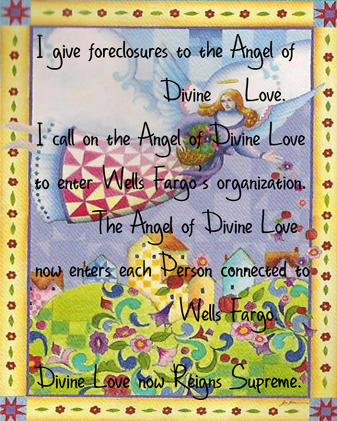 I give foreclosures to the Angel of
Divine Love.
I call on the Angel of Divine Love
to enter Wells Fargo's organization.
The Angel of Divine Love
now enters each Person connected to
Wells Fargo.
Divine Love now Reigns Supreme.